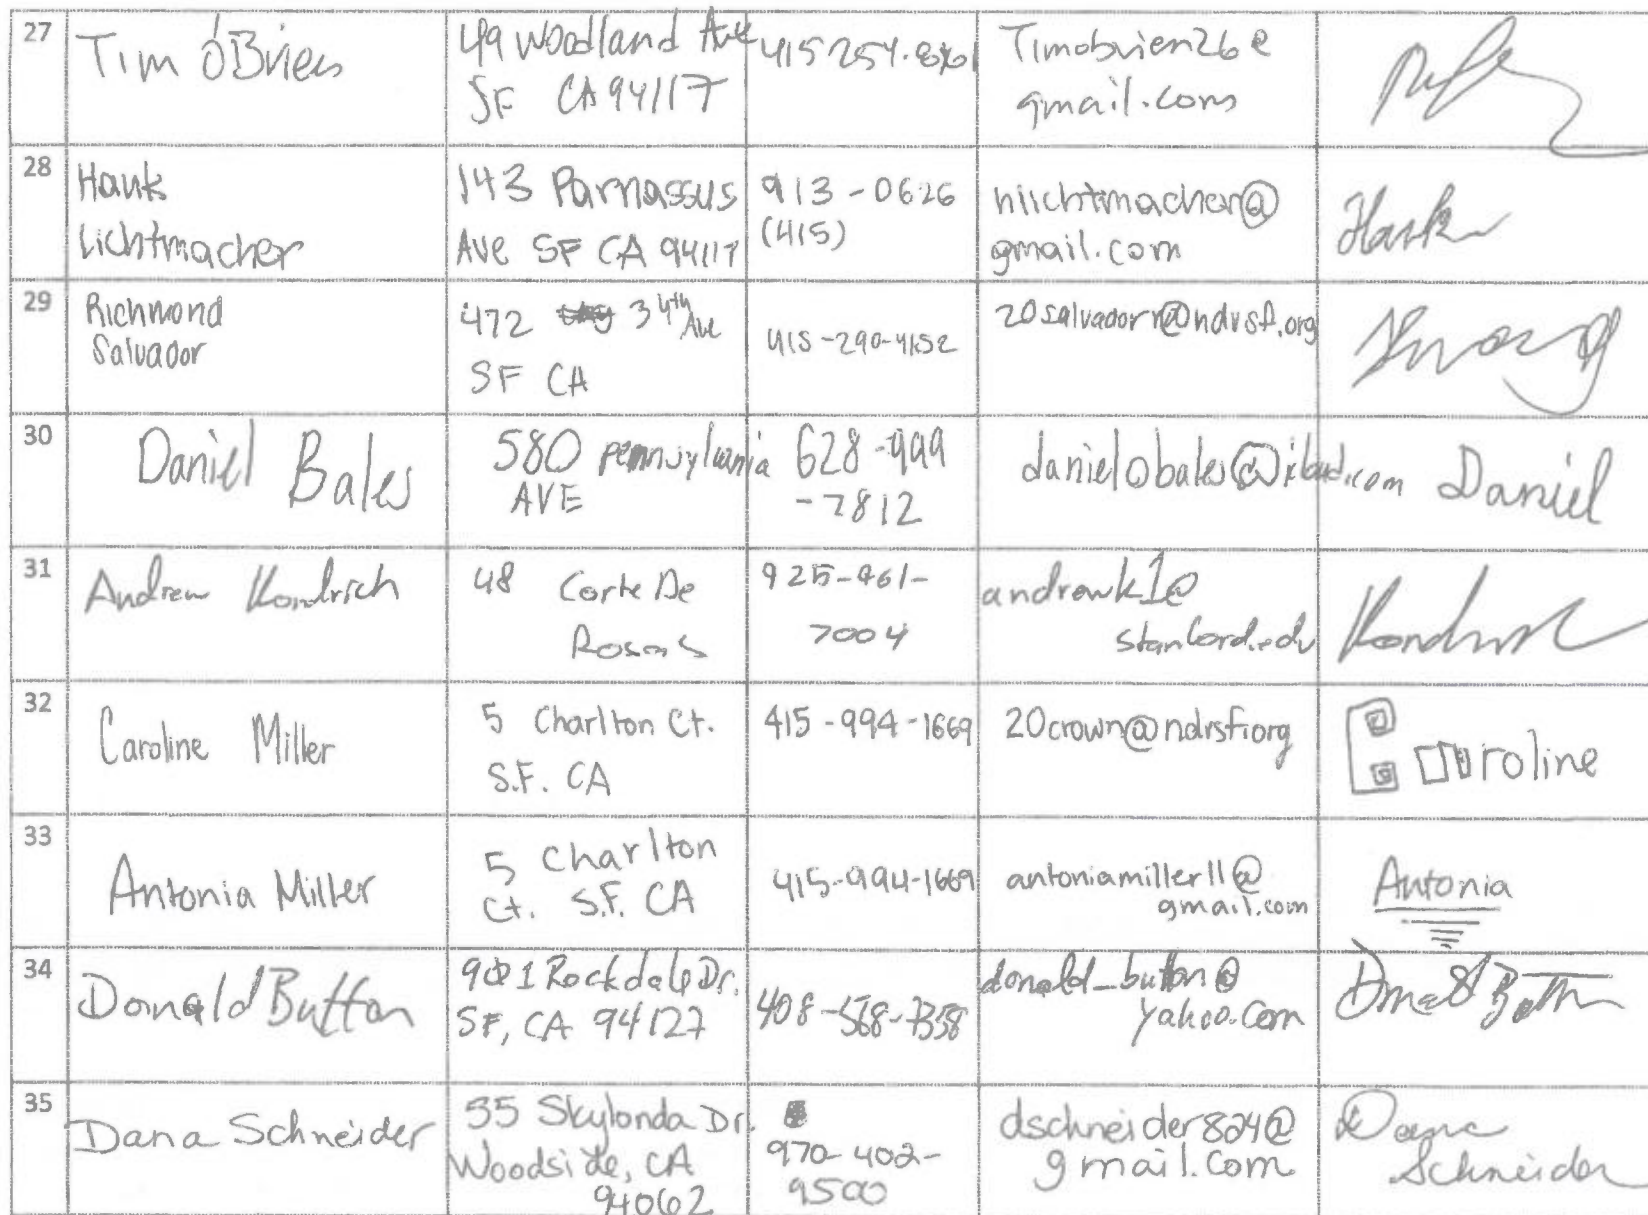 27
Tim O'Brien
49 Woodland Ave
SF CA 94117
415 254.
Timobrien26@
gmail.com
28
Hank
Lichtmacher
143 Parnassus
Ave SF CA 94117
913-0626
(415)
hlichtmacher@
gmail.com
Hank
29
Richmond
Salvador
472 34th Ave
SF CA
415-290-4152
20salvadorr@ndvsf.org
30
Daniel Bales
580 pennsylvania
AVE
628-999
-7812
danielobales@icloud.com
Daniel
31
Andrew Kondrich
48 Corte De
Rosas
925-961-
7004
andrewk1@
stanford.edu
32
Caroline Miller
5 Charlton Ct.
S.F. CA
415-994-1669
roline
33
Antonia Miller
5 Charlton
Ct. S.F. CA
415-994-1669
antoniamiller11@
gmail.com
Antonia
34
Donald Button
901 Rockdale Dr.
SF, CA 94127
donald_button@
yahoo.com
Donald Button
35
Dana Schneider
35 Skylonda Dr.
Woodside, CA
94062
970-402-
9500
dschneider824@
gmail.com
Dana
Schneider